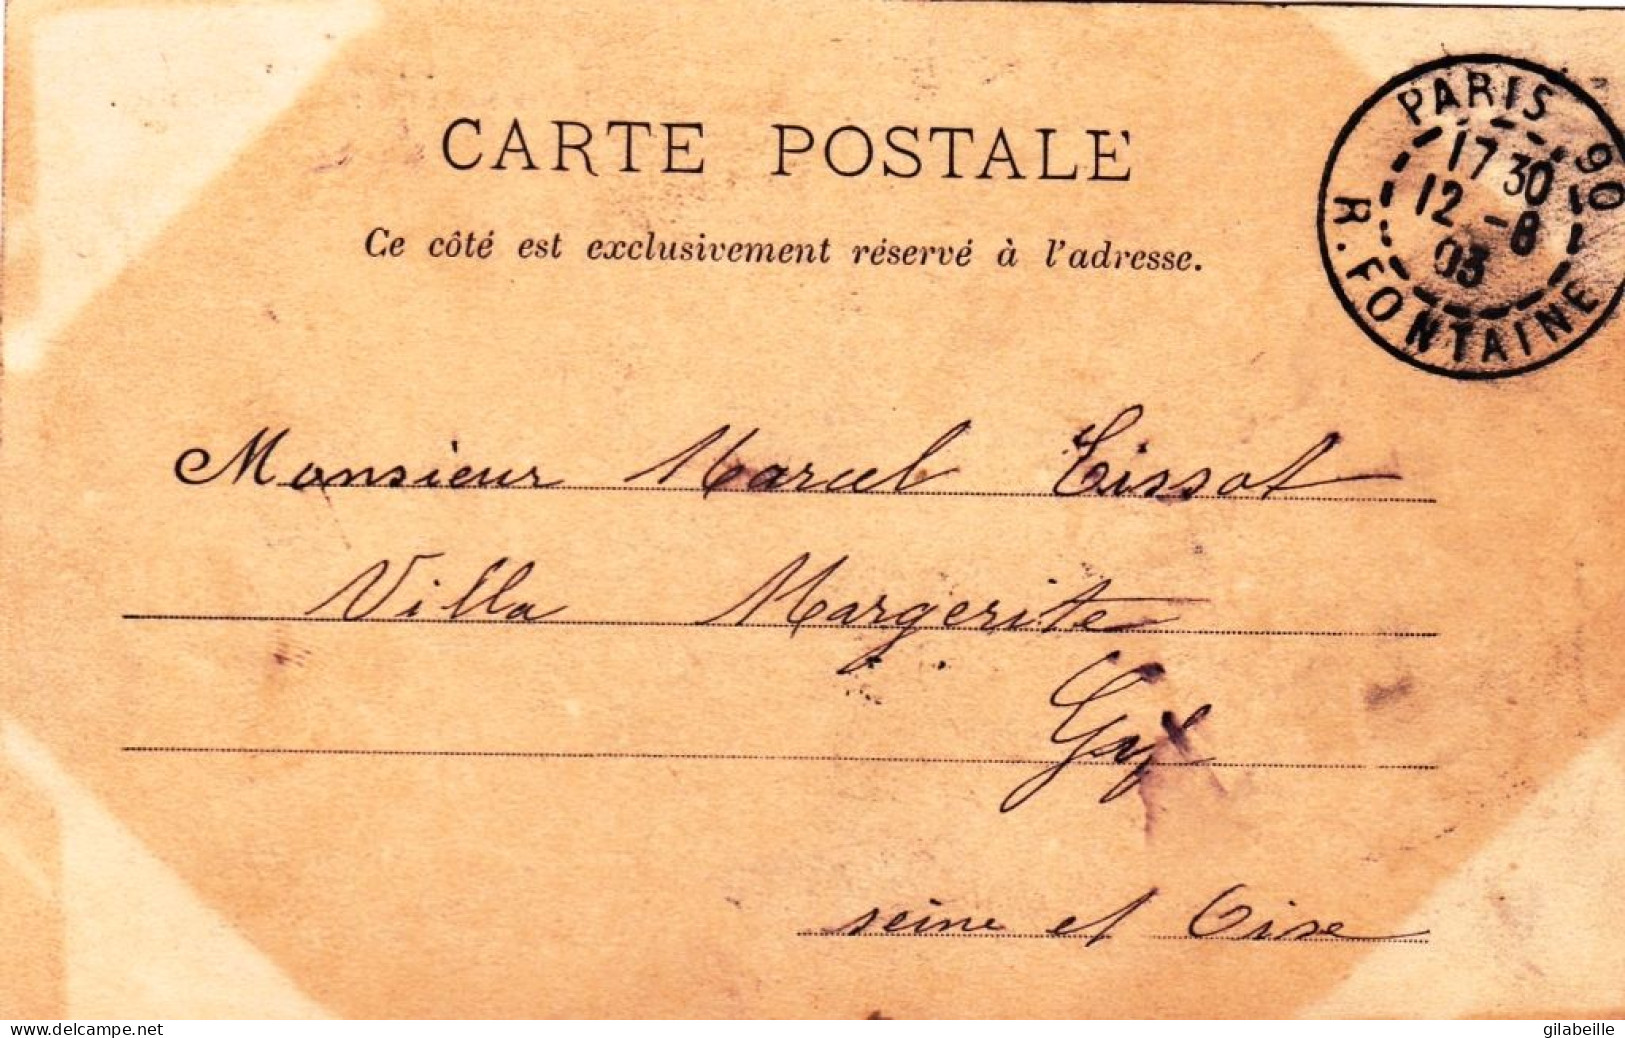 CARTE POSTALE
Ce côté est exclusivement réservé à l'adresse.
PARIS 90
17 30
12 -8
03
R. FONTAINE
Monsieur Marcel Tissot
Villa Margerite
seine et Oise
www.delcampe.net
gilabeille